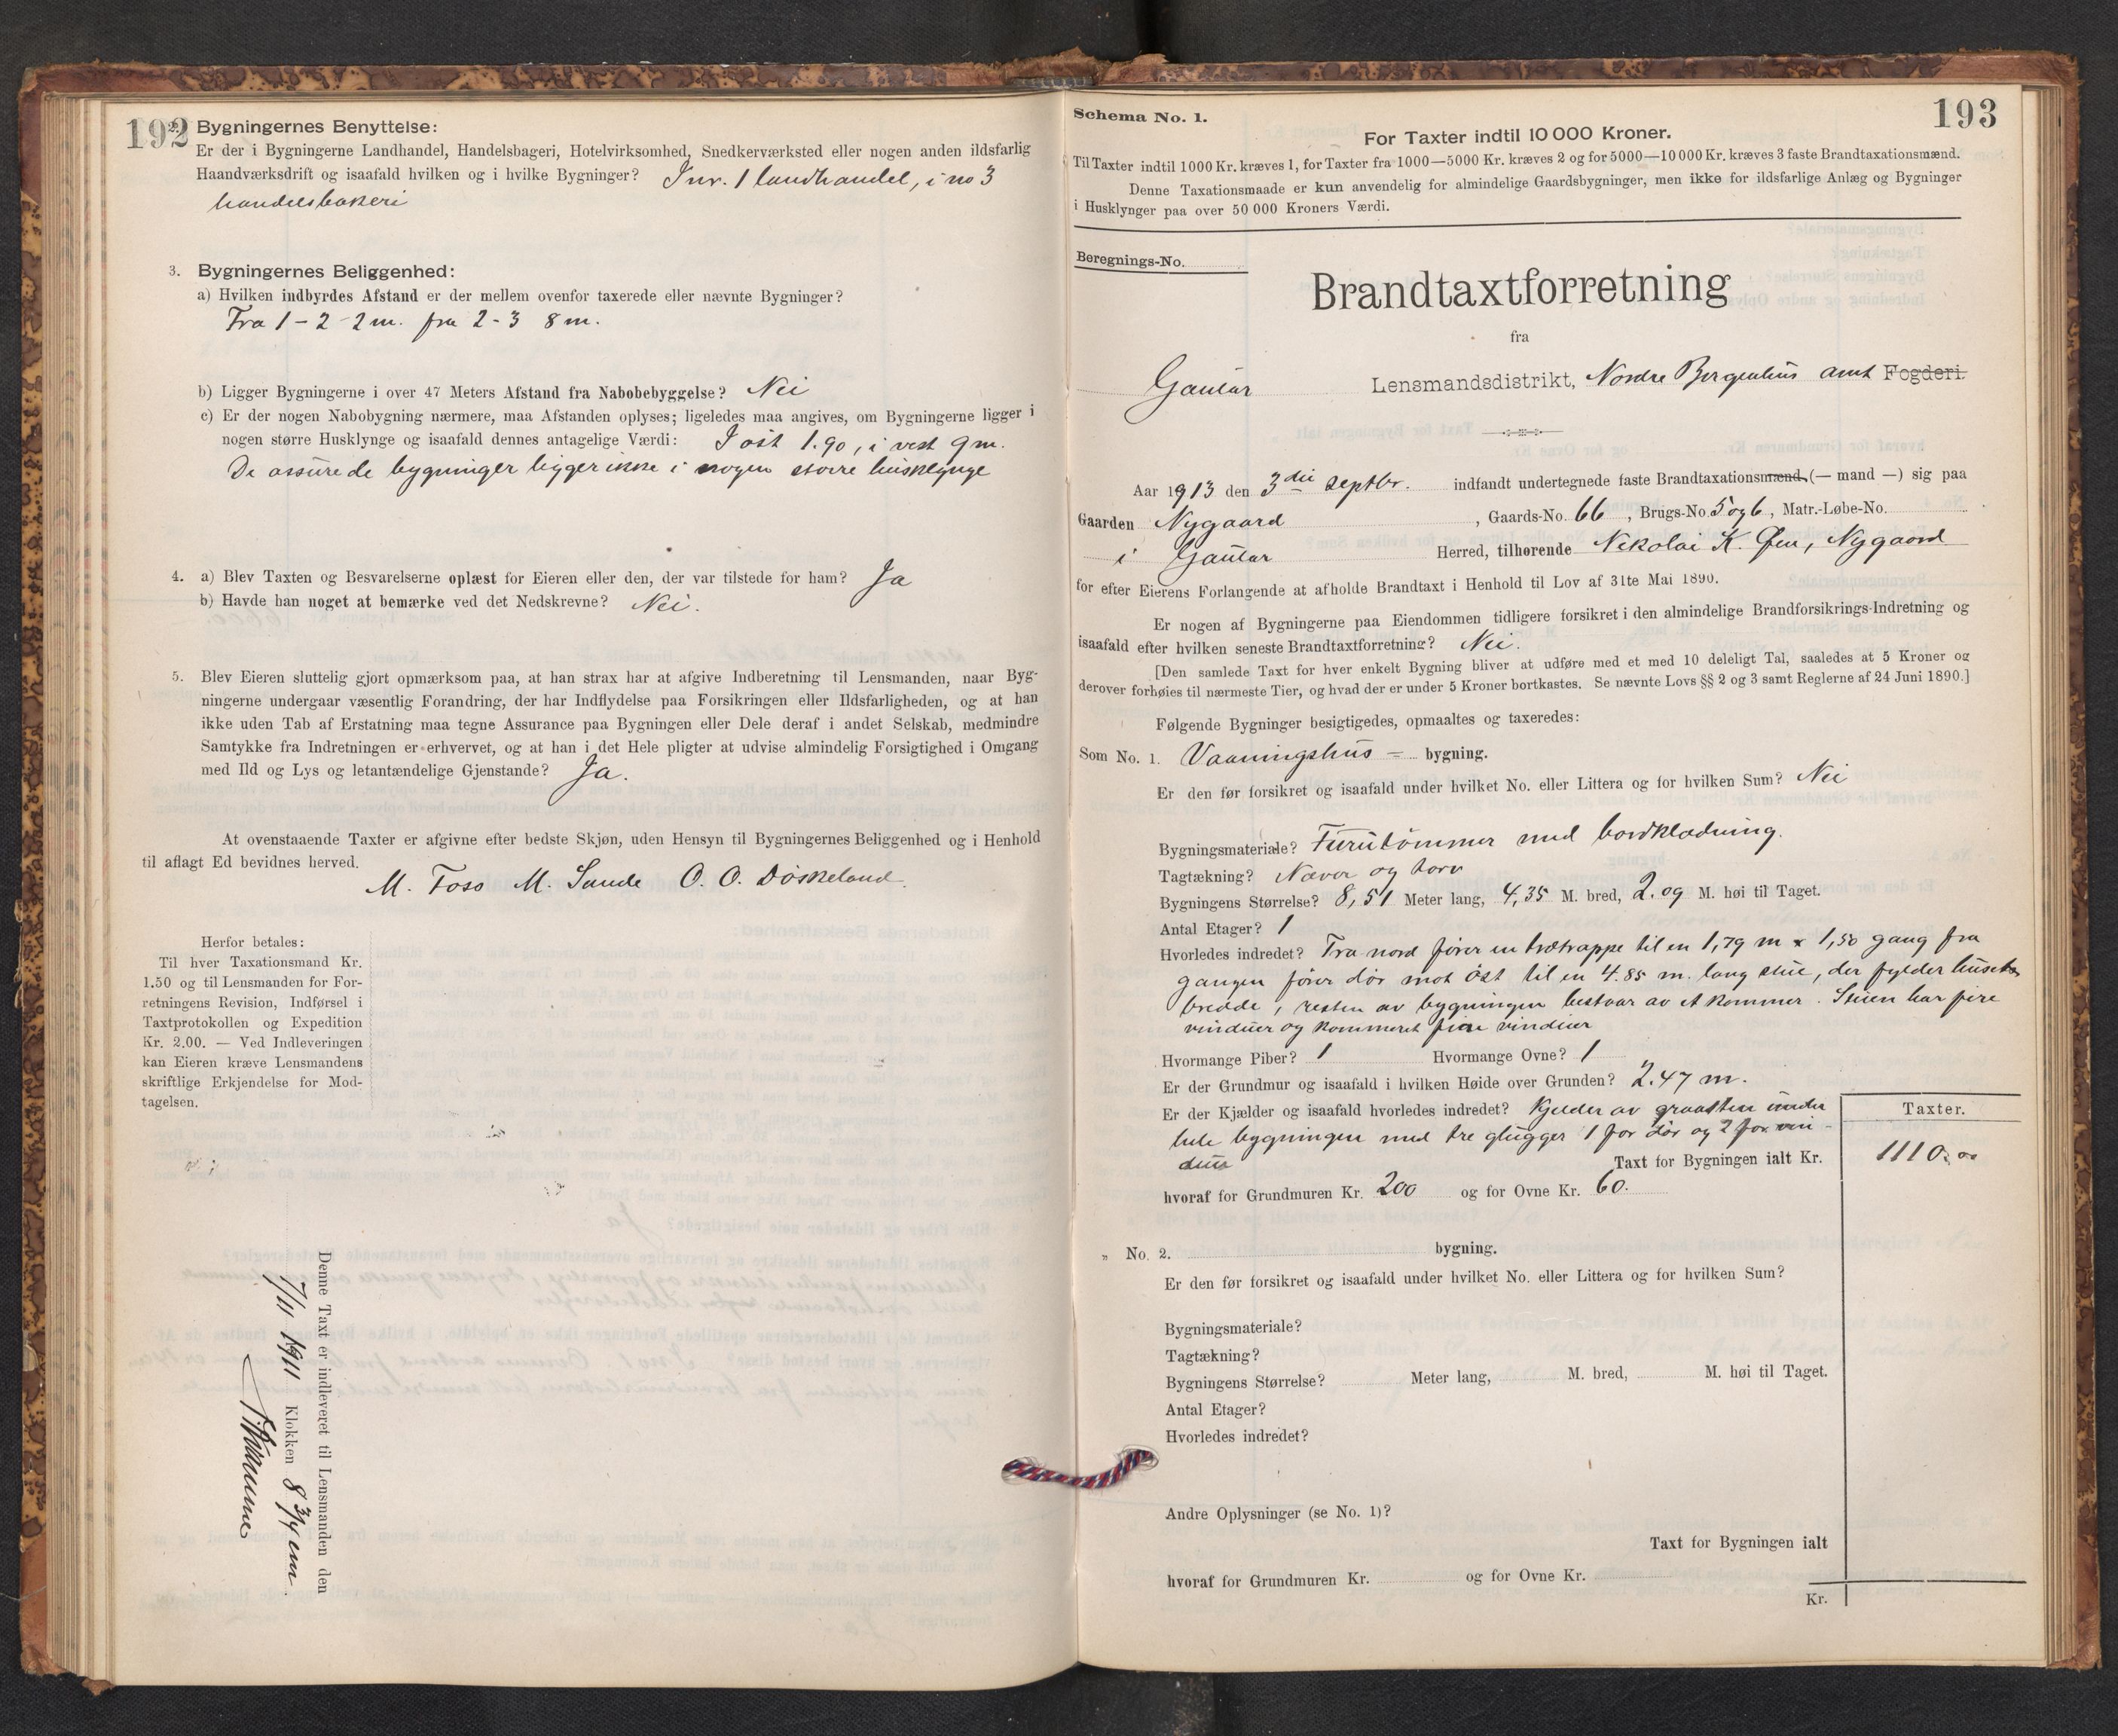 192
2. Bygningernes Benyttelse:
Er der i Bygningerne Landhandel, Handelsbageri, Hotelvirksomhed, Snedkerværksted eller nogen anden ildsfarlig
Haandværksdrift og isaafald hvilken og i hvilke Bygninger? I nr. 1 landhandel, i no 3
handelsbakeri
3. Bygningernes Beliggenhed:
a) Hvilken indbyrdes Afstand er der mellem ovenfor taxerede eller nævnte Bygninger?
Fra 1 - 2 - 2 m. fra 2 - 3 8 m.
b) Ligger Bygningerne i over 47 Meters Afstand fra Nabobebyggelse? Nei
c) Er der nogen Nabobygning nærmere, maa Afstanden oplyses; ligeledes maa angives, om Bygningerne ligger i
nogen større Husklynge og isaafald dennes antagelige Værdi: I øst 1.90, i vest 9 m.
De assurede bygninger ligger ikke i nogen større husklynge
4. a) Blev Taxten og Besvarelserne oplæst for Eieren eller den, der var tilstede for ham? Ja
b) Havde han noget at bemærke ved det Nedskrevne? Nei.
5. Blev Eieren sluttelig gjort opmærksom paa, at han strax har at afgive Indberetning til Lensmanden, naar Byg-
ningerne undergaar væsentlig Forandring, der har Indflydelse paa Forsikringen eller Ildsfarligheden, og at han
ikke uden Tab af Erstatning maa tegne Assurance paa Bygningen eller Dele deraf i andet Selskab, medmindre
Samtykke fra Indretningen er erhvervet, og at han i det Hele pligter at udvise almindelig Forsigtighed i Omgang
med Ild og Lys og letantændelige Gjenstande? Ja.
At ovenstaaende Taxter er afgivne efter bedste Skjøn, uden Hensyn til Bygningernes Beliggenhed og i Henhold
til aflagt Ed bevidnes herved.
M. Foss M. Sande O. O. Døskeland
Herfor betales:
Til hver Taxationsmand Kr.
1.50 og til Lensmanden for For-
retningens Revision, Indførsel i
Taxtprotokollen og Expedition
Kr. 2.00. — Ved Indleveringen
kan Eieren kræve Lensmandens
skriftlige Erkjendelse for Mod-
tagelsen.
Denne Taxt er indleveret til Lensmanden den
7/11 1911 Klokken 8 3/4 em
193
Schema No. 1.
For Taxter indtil 10 000 Kroner.
Til Taxter indtil 1000 Kr. kræves 1, for Taxter fra 1000—5000 Kr. kræves 2 og for 5000—10 000 Kr. kræves 3 faste Brandtaxationsmænd.
Denne Taxationsmaade er kun anvendelig for almindelige Gaardsbygninger, men ikke for ildsfarlige Anlæg og Bygninger
i Husklynger paa over 50 000 Kroners Værdi.
Beregnings-No.
Brandtaxtforretning
fra
Gaular Lensmandsdistrikt, Nordre Bergenhus amt Fogderi.
Aar 1913 den 3die septbr. indfandt undertegnede faste Brandtaxationsmænd (— mand —) sig paa
Gaarden Nygaard, Gaards-No. 66, Brugs-No. 5 og 6, Matr.-Løbe-No.
i Gaular Herred, tilhørende Nikolai K. Øen, Nygaard
for efter Eierens Forlangende at afholde Brandtaxt i Henhold til Lov af 31te Mai 1890.
Er nogen af Bygningerne paa Eiendommen tidligere forsikret i den almindelige Brandforsikrings-Indretning og
isaafald efter hvilken seneste Brandtaxtforretning? Nei.
[Den samlede Taxt for hver enkelt Bygning bliver at udføre med et med 10 deleligt Tal, saaledes at 5 Kroner og
derover forhøies til nærmeste Tier, og hvad der er under 5 Kroner bortkastes. Se nævnte Lovs §§ 2 og 3 samt Reglerne af 24 Juni 1890.]
Følgende Bygninger besigtigedes, opmaaltes og taxeredes:
Som No. 1. Vaaningshus = bygning.
Er den før forsikret og isaafald under hvilket No. eller Littera og for hvilken Sum? Nei
Bygningsmateriale? Furutømmer med bordklædning.
Tagtækning? Næver og torv
Bygningens Størrelse? 8,51 Meter lang, 4,35 M. bred, 2.09 M. høi til Taget.
Antal Etager? 1
Hvorledes indredet? Fra nord fører en trætrappe til en 1,79 m x 1,50 gang fra
gangen fører dør mot øst til en 4.85 m. lang stue, der fylder husets
bredde, resten av bygningen bestaar av et kammer. Stuen har fire
vinduer og kammeret fire vinduer
Hvormange Piber? 1 Hvormange Ovne? 1
Er der Grundmur og isaafald i hvilken Høide over Grunden? 2.47 m.
Er der Kjælder og isaafald hvorledes indredet? Kjelder av graasten under
Taxter.
hele bygningen med tre glugger 1 for dør og 2 for vin-
duer Taxt for Bygningen ialt Kr. 1110.00
hvoraf for Grundmuren Kr. 200 og for Ovne Kr. 60.
„ No. 2. bygning.
Er den før forsikret og isaafald under hvilket No. eller Littera og for hvilken Sum?
Bygningsmateriale?
Tagtækning?
Bygningens Størrelse? Meter lang, M. bred, M. høi til Taget.
Antal Etager?
Hvorledes indredet?
Andre Oplysninger (se No. 1)?
Taxt for Bygningen ialt
hvoraf for Grundmuren Kr. og for Ovne Kr.
Kr.